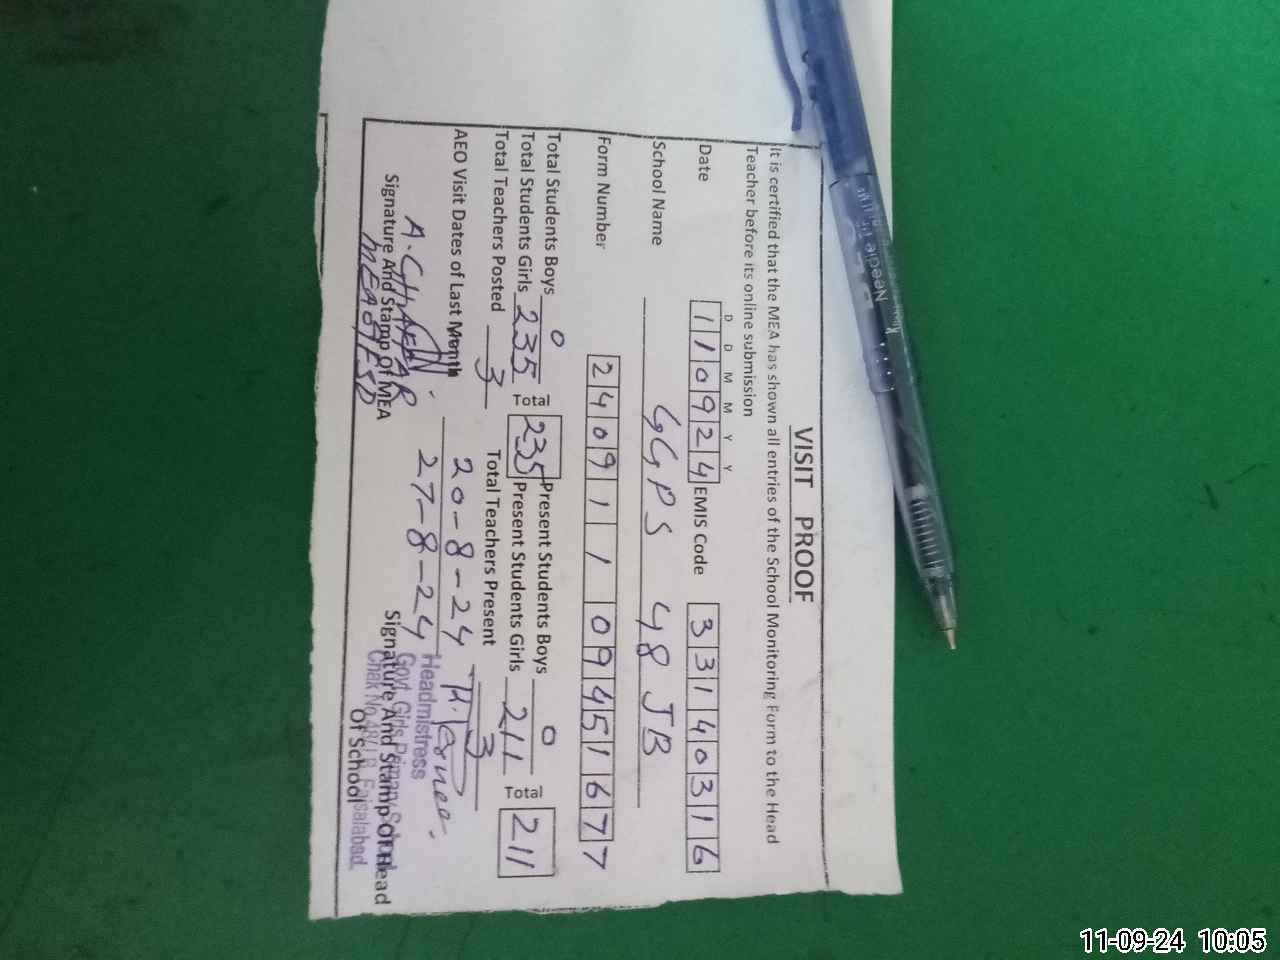 VISIT PROOF
It is certified that the MEA has shown all entries of the School Monitoring Form to the Head
Teacher before its online submission
D D M M Y Y
Date 110924 EMIS Code 33140316
School Name GGPS 48 JB
Form Number 2409110945167 7
Total Students Boys 0 Present Students Boys 0
Total Students Girls 235 Total 235 Present Students Girls 211 Total 211
Total Teachers Posted 3 Total Teachers Present 3
AEO Visit Dates of Last Month 20-8-24
27-8-24
A. GHAFFAR
MEA
Signature And Stamp Of MEA
Headmistress
Govt. Girls Primary School
Chak No. 48/J.B. Faisalabad.
Signature And Stamp Of Head
Of School
Needle
11-09-24 10:05